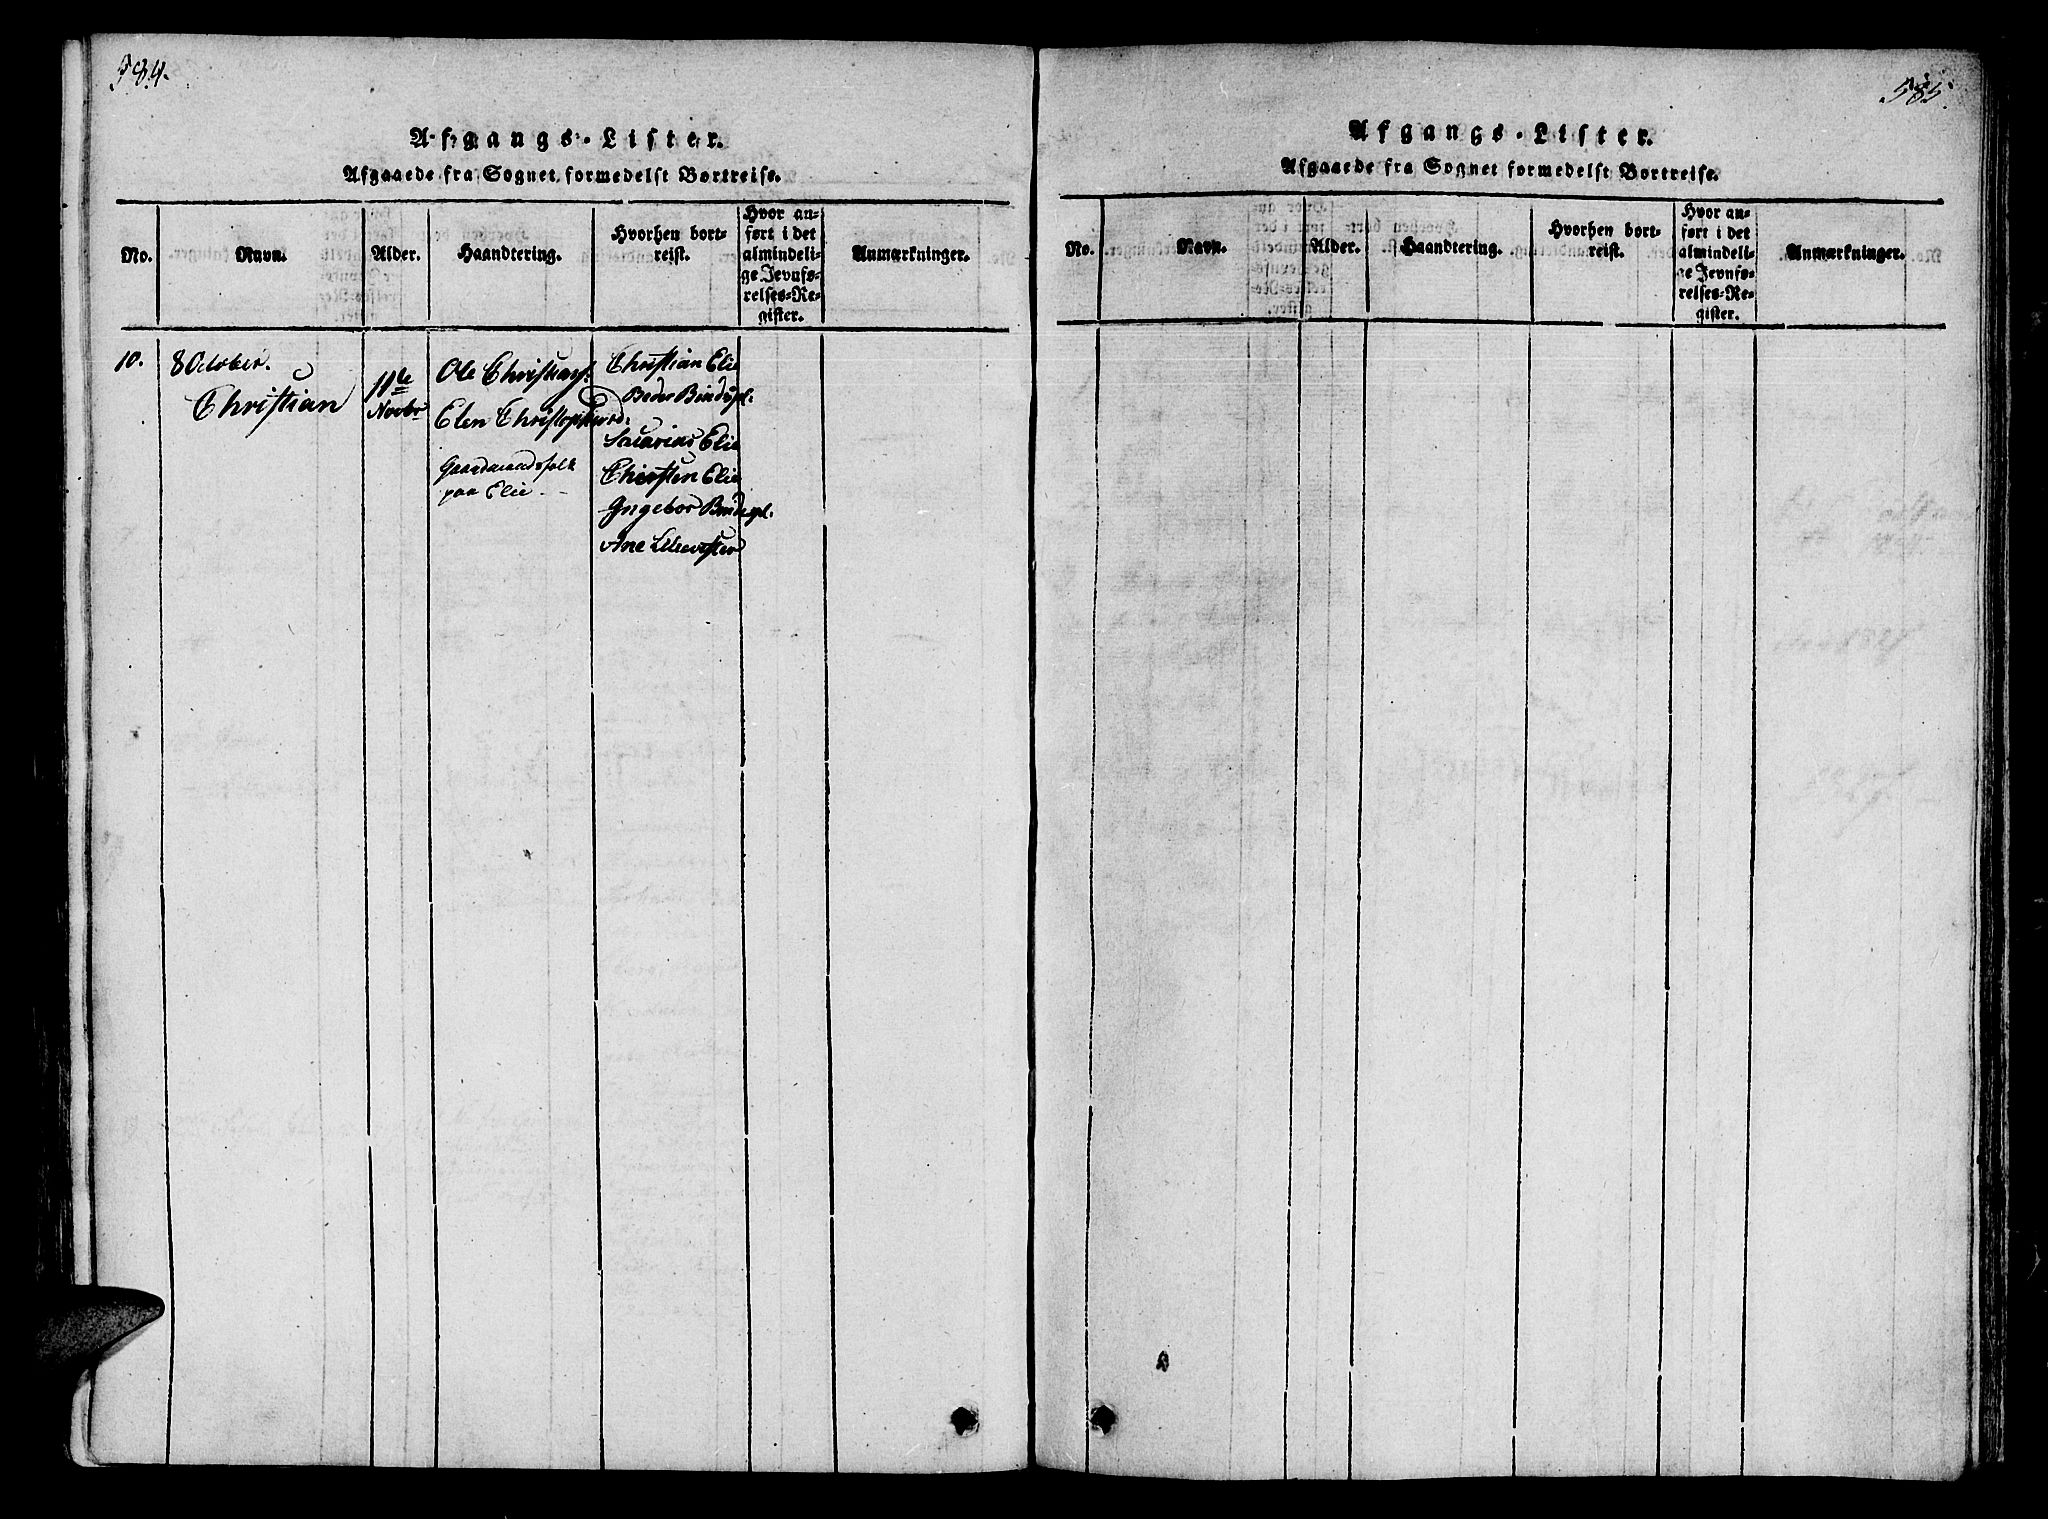 584.
Afgangs-Lister.
Afgaaede fra Sognet formedelst Bortreise.
No.
Navn.
Alder.
Haandtering.
Hvorhen bort-
reist.
Hvor an-
ført i det
almindeli-
ge Jevnfø-
relses-Re-
gister.
Anmærkninger.
10.
8 October.
Christian
11te
Novbr
Ole Christians.
Elen Christophersd.
Gaardmandsfolk
paa Elie
Christian Elie
Peder
Sacarias Elie
Thersten Elie
Ingebor
Ane
585.
Afgangs-Lister.
Afgaaede fra Sognet formedelst Bortreise.
No.
Navn.
Alder.
Haandtering.
Hvorhen bort-
reist.
Hvor an-
ført i det
almindeli-
ge Jevnfø-
relses-Re-
gister.
Anmærkninger.